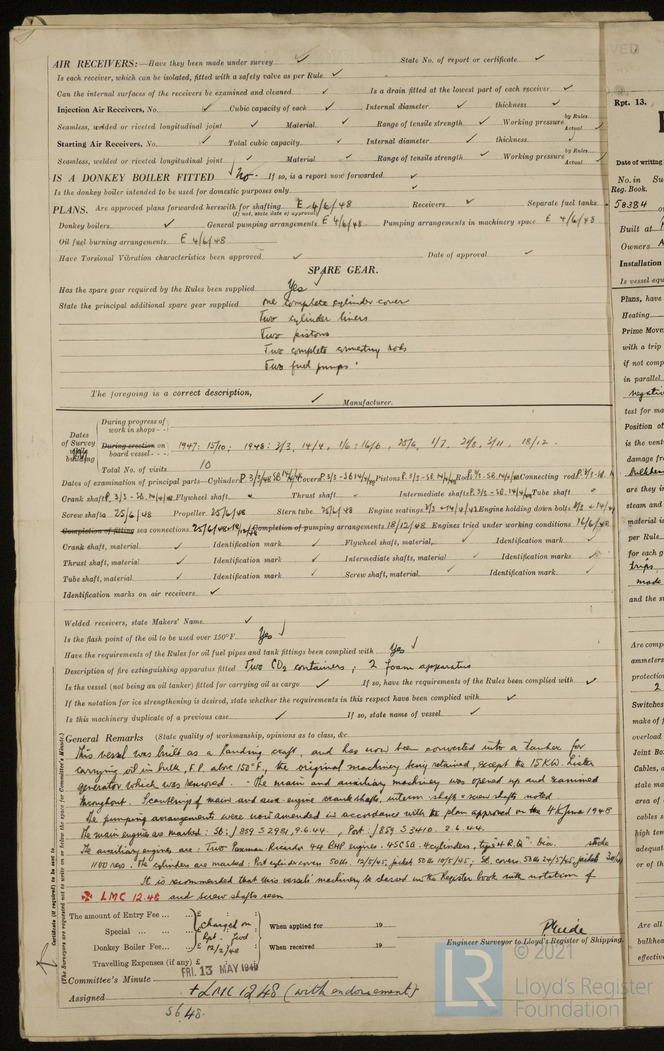 AIR RECEIVERS:—Have they been made under survey ✓ State No. of report or certificate ✓
Is each receiver, which can be isolated, fitted with a safety valve as per Rule ✓
Can the internal surfaces of the receivers be examined and cleaned ✓ Is a drain fitted at the lowest part of each receiver ✓
Injection Air Receivers, No. ✓ Cubic capacity of each ✓ Internal diameter ✓ thickness ✓
Seamless, welded or riveted longitudinal joint ✓ Material ✓ Range of tensile strength ✓ Working pressure by Rules Actual ✓
Starting Air Receivers, No. ✓ Total cubic capacity ✓ Internal diameter ✓ thickness ✓
Seamless, welded or riveted longitudinal joint ✓ Material ✓ Range of tensile strength ✓ Working pressure by Rules Actual ✓
IS A DONKEY BOILER FITTED No. If so, is a report now forwarded ✓
Is the donkey boiler intended to be used for domestic purposes only ✓
PLANS. Are approved plans forwarded herewith for shafting E 4/6/48 Receivers ✓ Separate fuel tanks
(If not, state date of approval)
Donkey boilers ✓ General pumping arrangements E 4/6/48 Pumping arrangements in machinery space E 4/6/48
Oil fuel burning arrangements E 4/6/48
Have Torsional Vibration characteristics been approved ✓ Date of approval ✓
SPARE GEAR.
Has the spare gear required by the Rules been supplied Yes ✓
State the principal additional spare gear supplied one complete cylinder cover
Two cylinder liners
Two pistons
Two complete connecting rods
Two fuel pumps.
The foregoing is a correct description, ✓ Manufacturer.
Dates of Survey while building
During progress of work in shops - -
During erection on board vessel - - - 1947: 15/10; 1948: 3/3, 14/4, 1/6: 16/6, 25/6, 1/7, 3/11, 18/12.
Total No. of visits 10
Dates of examination of principal parts—Cylinders Covers Pistons Rods Connecting rods
Crank shaft Flywheel shaft Thrust shaft Intermediate shafts Tube shaft
Screw shafts 25/6/48 Propeller 25/6/48 Stern tube 25/6/48 Engine seatings Engine holding down bolts
Completion of fitting sea connections Completion of pumping arrangements 18/12/48 Engines tried under working conditions 16/6/48
Crank shaft, material ✓ Identification mark ✓ Flywheel shaft, material ✓ Identification mark ✓
Thrust shaft, material ✓ Identification mark ✓ Intermediate shafts, material ✓ Identification marks ✓
Tube shaft, material ✓ Identification mark ✓ Screw shaft, material ✓ Identification mark ✓
Identification marks on air receivers ✓
Welded receivers, state Makers' Name ✓
Is the flash point of the oil to be used over 150°F. Yes ✓
Have the requirements of the Rules for oil fuel pipes and tank fittings been complied with Yes ✓
Description of fire extinguishing apparatus fitted Two CO2 containers; 2 foam apparatus
Is the vessel (not being an oil tanker) fitted for carrying oil as cargo ✓ If so, have the requirements of the Rules been complied with ✓
If the notation for ice strengthening is desired, state whether the requirements in this respect have been complied with ✓
Is this machinery duplicate of a previous case ✓ If so, state name of vessel ✓
General Remarks (State quality of workmanship, opinions as to class, &c.
This vessel was built as a Landing craft, and has now been converted into a tanker for
carrying oil in bulk, F.P. above 150°F., the original machinery being retained, except the 15 KW. Lister
generator which was removed. - The main and auxiliary machinery was opened up and examined
throughout. Scantlings of main and aux engine crank shafts, interm. shaft & screw shafts noted.
The pumping arrangements were amended in accordance with the plan approved on the 4 June 1948
The main engines are marked: Sb: 859 S 2981, 9.6.44., Port: 859 S 3410. 2.6.44.
The auxiliary engines are: Two Paxman Ricardo 44 BHP engines: 4SCSA: 4 cylinders, type "4 R.Q." dia. stroke
1100 revs. The cylinders are marked: Port cylinder covers 50 lb 12/5/45, jacket 50 lb 10/5/45; Sb. covers 50 lb 24/5/45, jacket
It is recommended that this vessels' machinery be classed in the Register book with notation of
✠ LMC 12.48 and screw shafts seen
The amount of Entry Fee ... £ : :
Special ... ... £ : : When applied for 19
Donkey Boiler Fee... £ : : When received 19
Travelling Expenses (if any) £ : :
Charged on
Rpt. fwd
12/2/48
Engineer Surveyor to Lloyd's Register of Shipping.
Committee's Minute FRI. 13 MAY 1949
Assigned + LMC 12 48 (with endorsement)
56.48.
Certificate (if required) to be sent to
(The Surveyors are requested not to write on or below the space for Committee's Minute.)
Rpt. 13.
Date of writing
No. in Su
Reg. Book.
58384
Built at
Owners
Installation
Is vessel equ
Plans, have
Heating
Prime Move
with a trip
if not comp
in parallel
negativ
test for ma
Position of
is the vent
damage fr
are they in
steam and
material is
per Rule
for each g
trips
made
and the su
Are comp
ammeters
protection
2
Switches
make of f
overload
Joint Bo
Cables, a
stale ma
area of
cables
high tem
adequat
or of th
Are all
bulkhea
effective
© 2021
LR
Lloyd's Register
Foundation